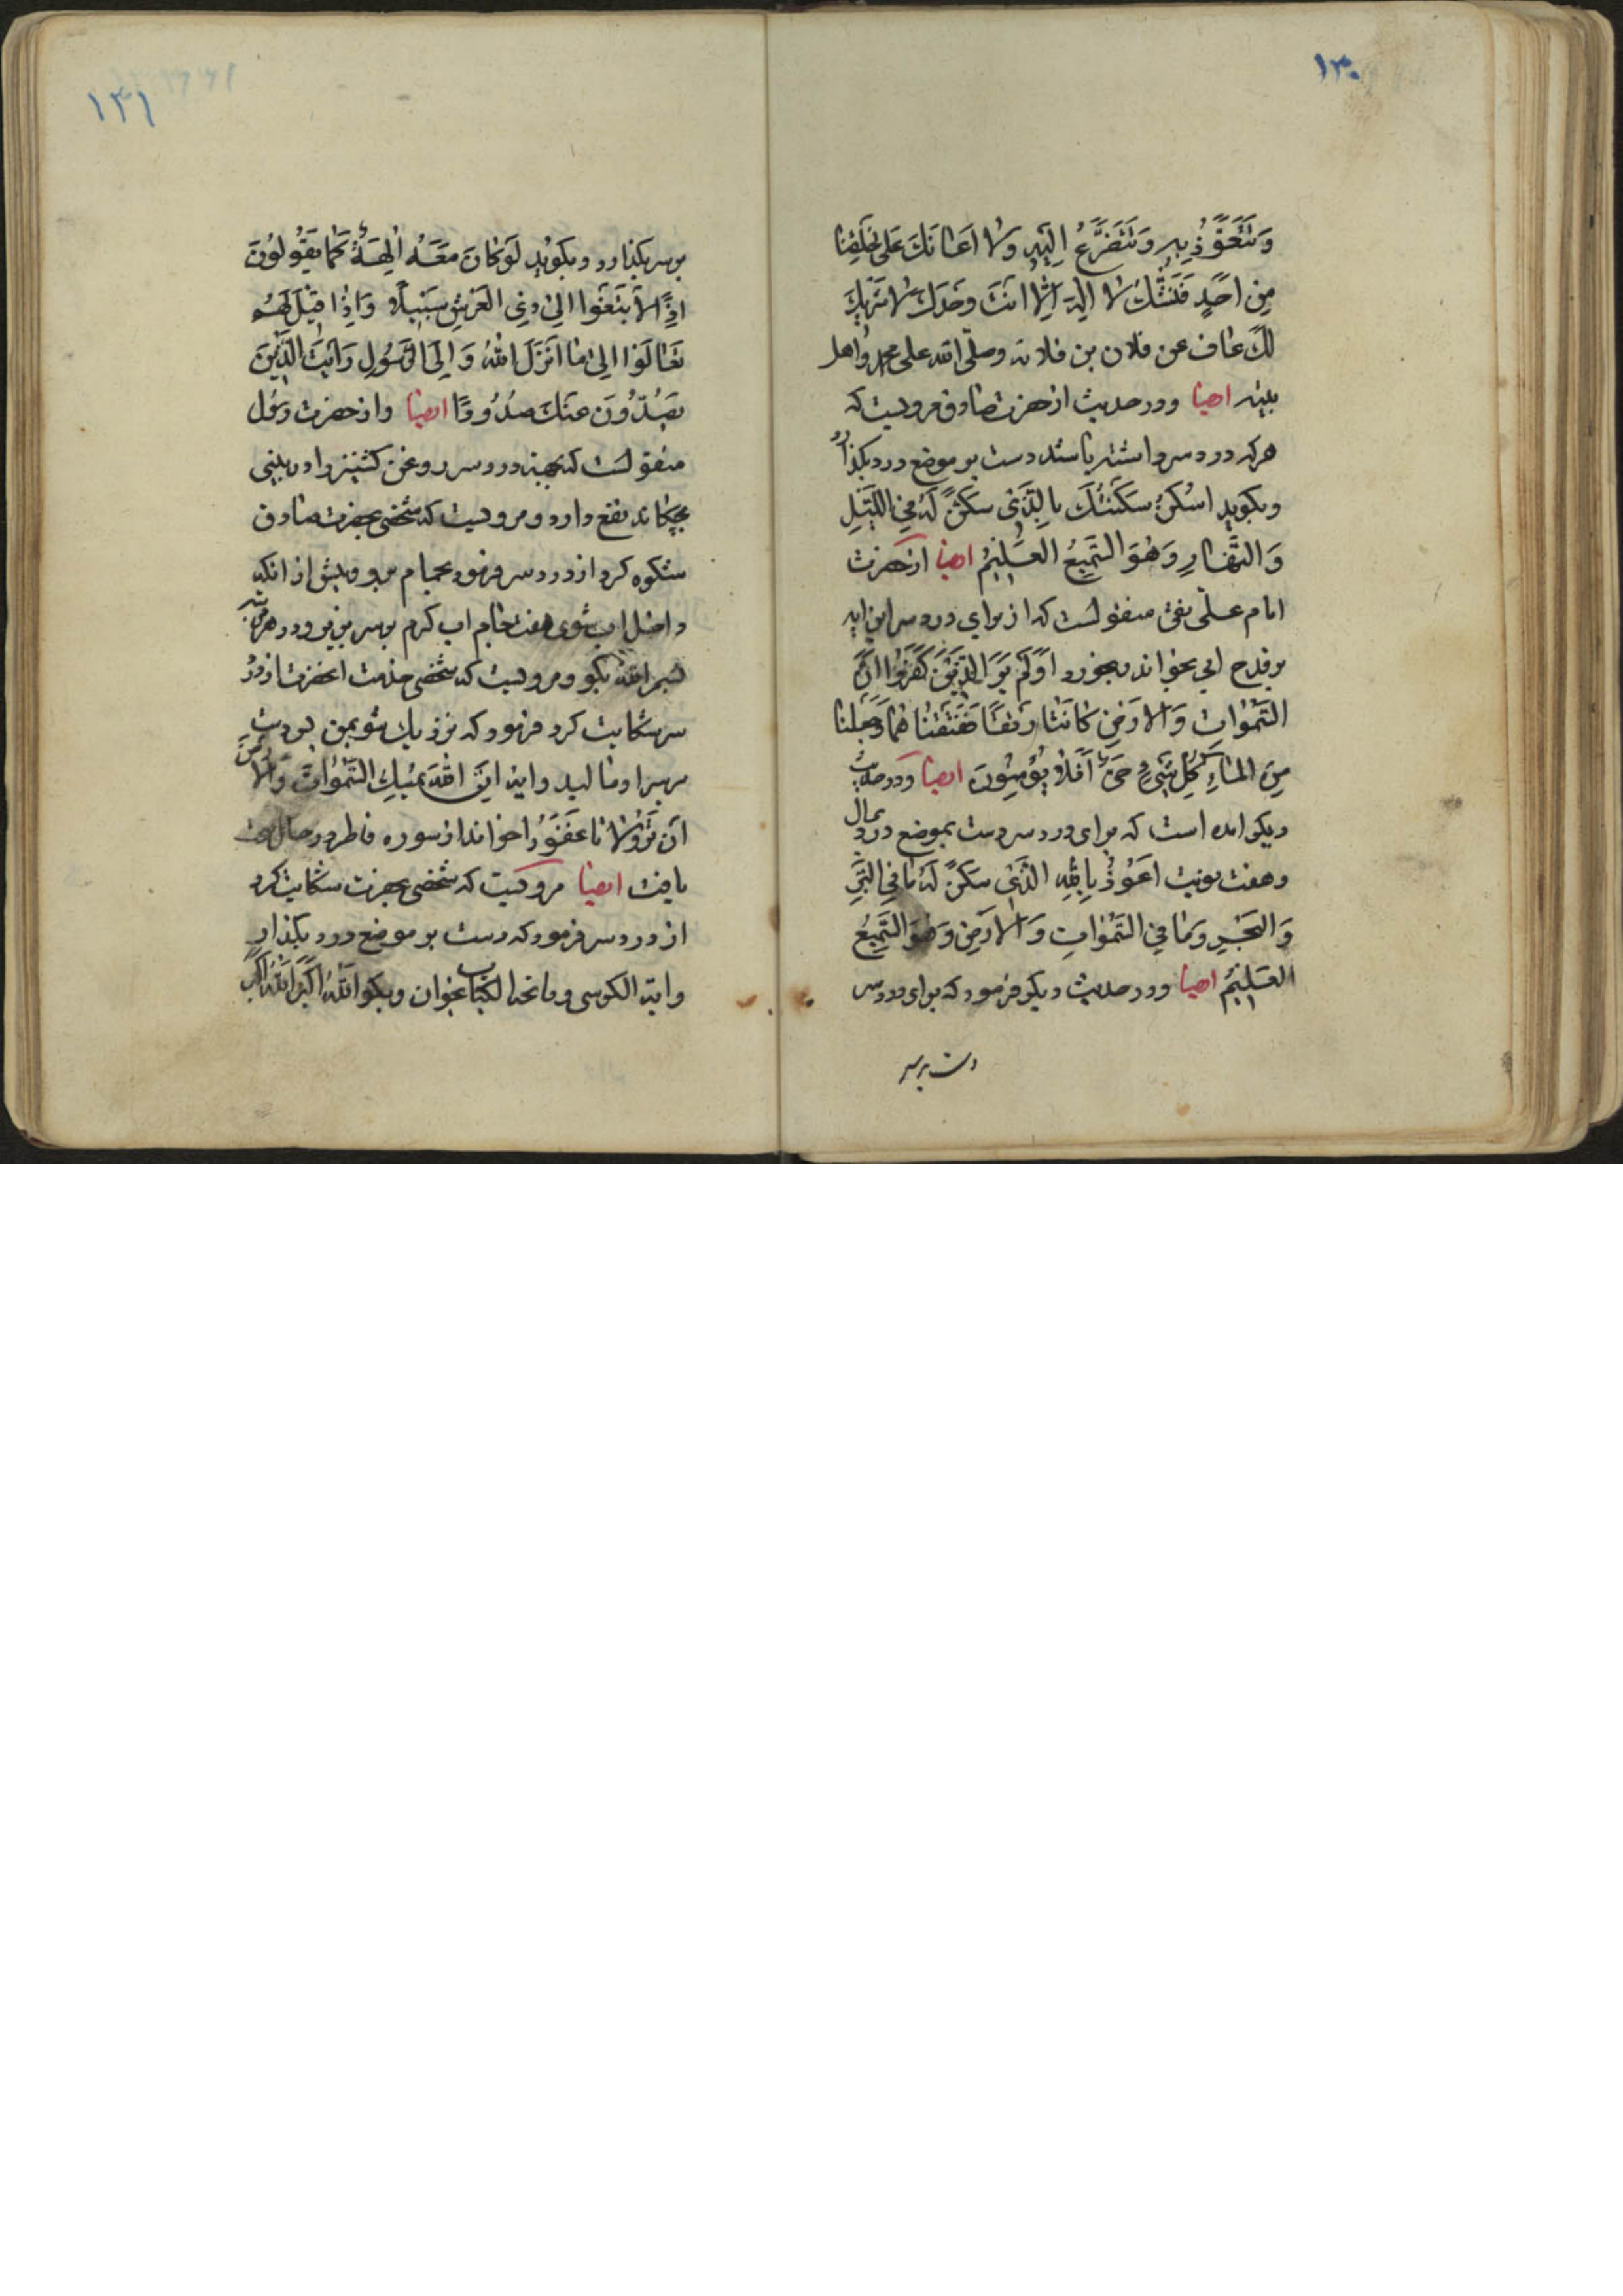 ١٣٠
وَنَتَعَوَّذُ بِهِ وَنَتَضَرَّعُ اِلَيْهِ وَلا اَعانَكَ عَلى خَلْقِنا
مِن اَحَدٍ فَنَشُكُّ لا اِلهَ اِلّا اَنتَ وَحدَكَ لا شَريكَ
لَكَ عاف عن فلان بن فلانه وصلّى الله على محمد واهل
بيته ايضا ودر حديث از حضرت صادق مرويست كه
هركه درد سر داشته باشد دست بر موضع درد بگذارد
وبگويد اُسْكُنْ سَكَّنْتُكَ بِالَّذي سَكَنَ لَهُ ما فِي اللَّيْلِ
وَالنَّهارِ وَهُوَ السَّميعُ العَليمُ ايضا از حضرت
امام على نقى منقولست كه از براى درد سر اين ايه
بر قدح ابى بخواند وبخورد اَوَلَم يَرَ الَّذينَ كَفَرُوا اَنَّ
السَّمٰواتِ وَالارَضِ كانَتا رَتقًا فَفَتَقناهُما وَجَعَلنا
مِنَ الماءِ كُلَّ شَيءٍ حَيٍّ اَفَلا يُؤمِنُونَ ايضا ودر حديث
ديكر امده است كه براى درد سر دست بموضع درد بمال
وهفت نوبت اَعُوذُ بِاللهِ الَّذي سَكَنَ لَهُ ما فِي البَرِّ
وَالبَحْرِ وَما فِي السَّمٰواتِ وَالارَضِ وَهُوَ السَّميعُ
العَليمُ ايضا ودر حديث ديكر فرمود كه براى درد سر
دست بر سر
١٣١
بر سر بگذارد وبگويد لَو كانَ مَعَهُ آلِهَةٌ كَما يَقُولُونَ
اِذًا لاَبتَغَوا اِلى ذِي العَرشِ سَبيلًا وَاِذا قيلَ لَهُم
تَعالَوا اِلى ما اَنزَلَ اللهُ وَاِلَى الرَّسُولِ رَاَيتَ الَّذينَ
يَصُدُّونَ عَنكَ صُدُودًا ايضا واز حضرت رسول
منقولست كه بجهت درد سر روغن كشنيز را در بينى
بچكاند نفع دارد ومرويست كه شخصى بحضرت صادق
شكوه كرد از درد سر فرمود بحمام برو وپيش از انكه
داخل اب شوى هفت جام اب كرم بر سر بريز ودر هر مرتبه
بسم الله بگو ومرويست كه شخصى خدمت انحضرت از درد
سر شكايت كرد فرمود كه نزديك شو بمن پس دست
بر سر او ماليد واين ايه اِنَّ اللهَ يُمسِكُ السَّمٰواتِ وَالاَرضَ
اَن تَزُولا تا غَفُورًا خواند از سوره فاطر در حال صحت
يافت ايضا مرويست كه شخصى بحضرت شكايت كرد
از درد سر فرمود كه دست بر موضع درد بگذار
واية الكرسى وفاتحة الكتاب بخوان وبگو اَللهُ اَكبَرُ اَللهُ اَكبَرُ